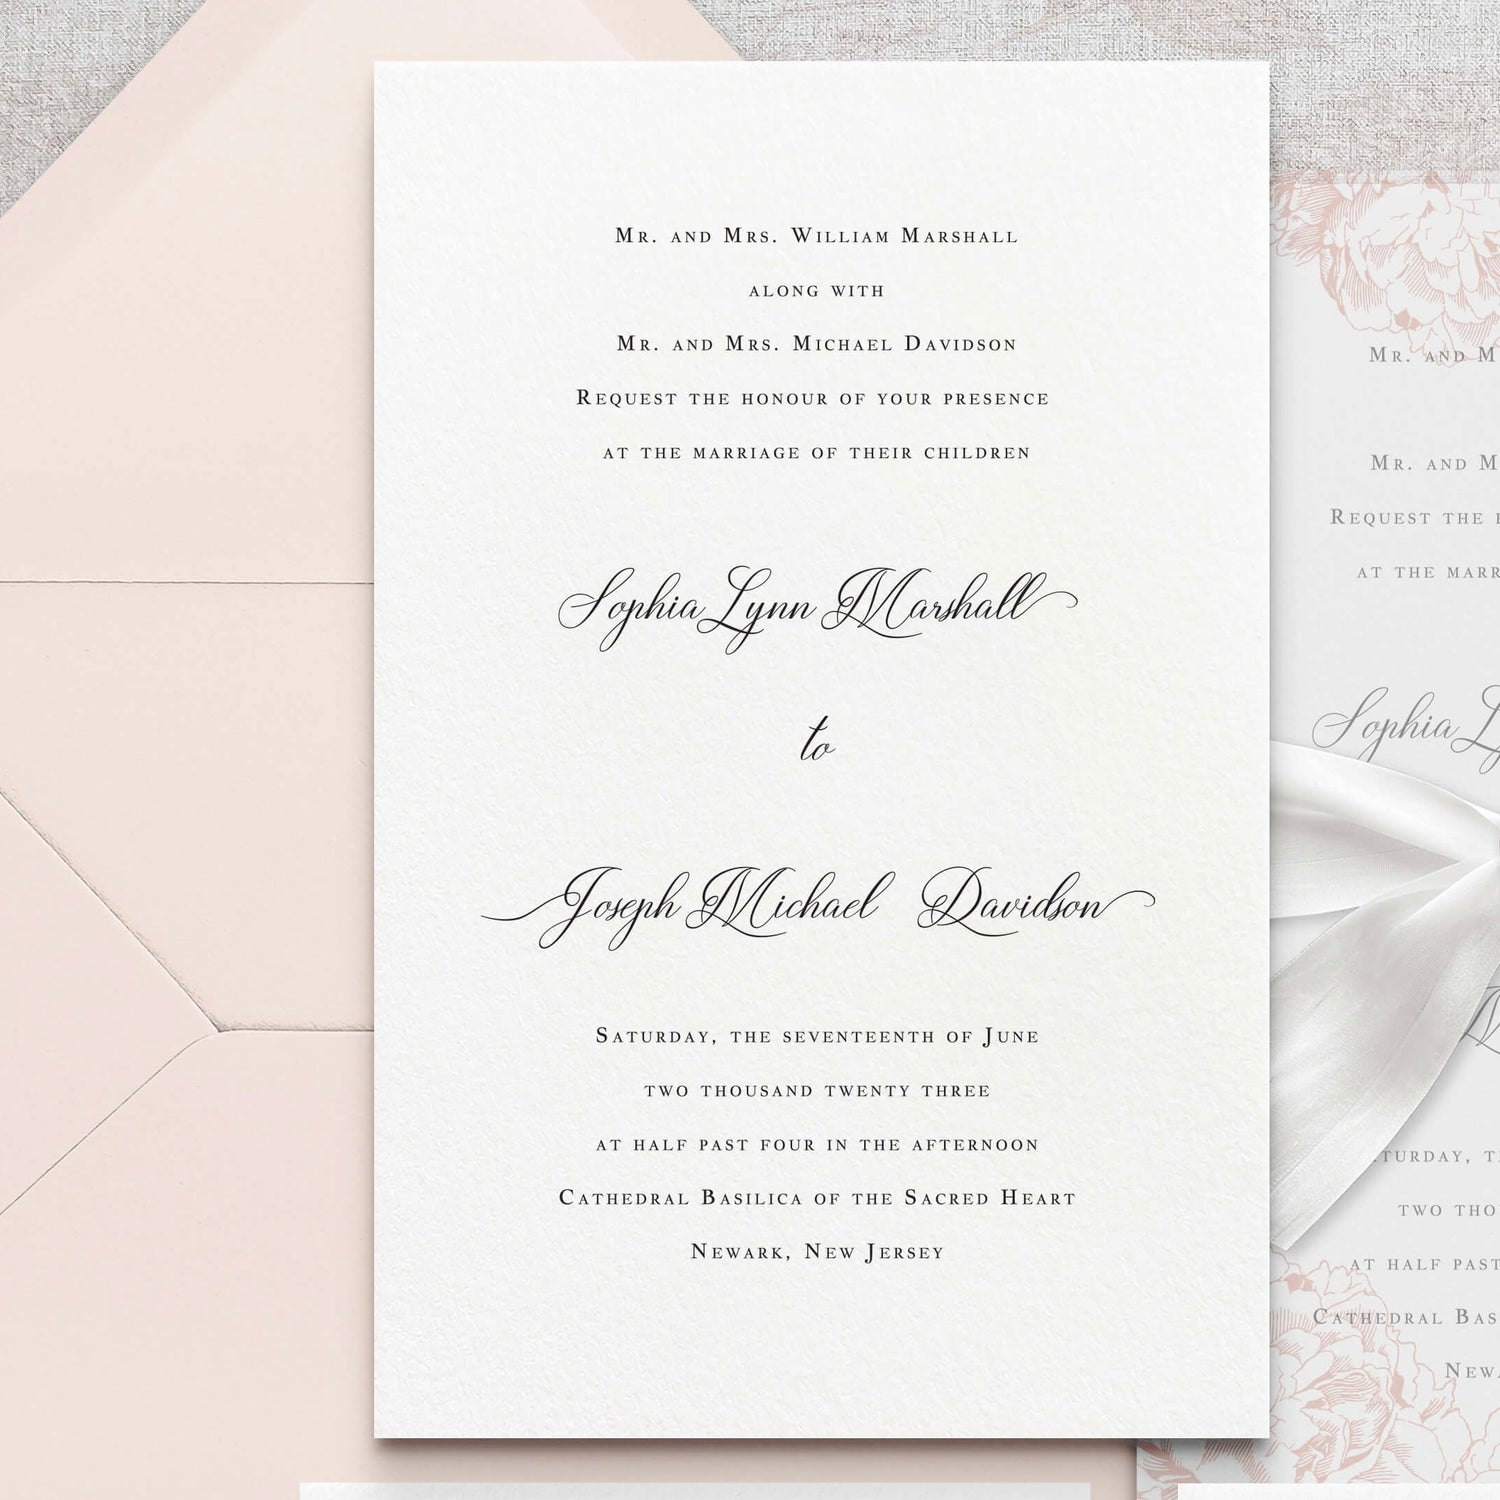 Mr. and Mrs. William Marshall
along with
Mr. and Mrs. Michael Davidson
Request the honour of your presence
at the marriage of their children
Sophia Lynn Marshall
to
Joseph Michael Davidson
Saturday, the seventeenth of June
two thousand twenty three
at half past four in the afternoon
Cathedral Basilica of the Sacred Heart
Newark, New Jersey
Mr. and
Mr. and
Request the
at the
Sophia
at half past
Cathedral